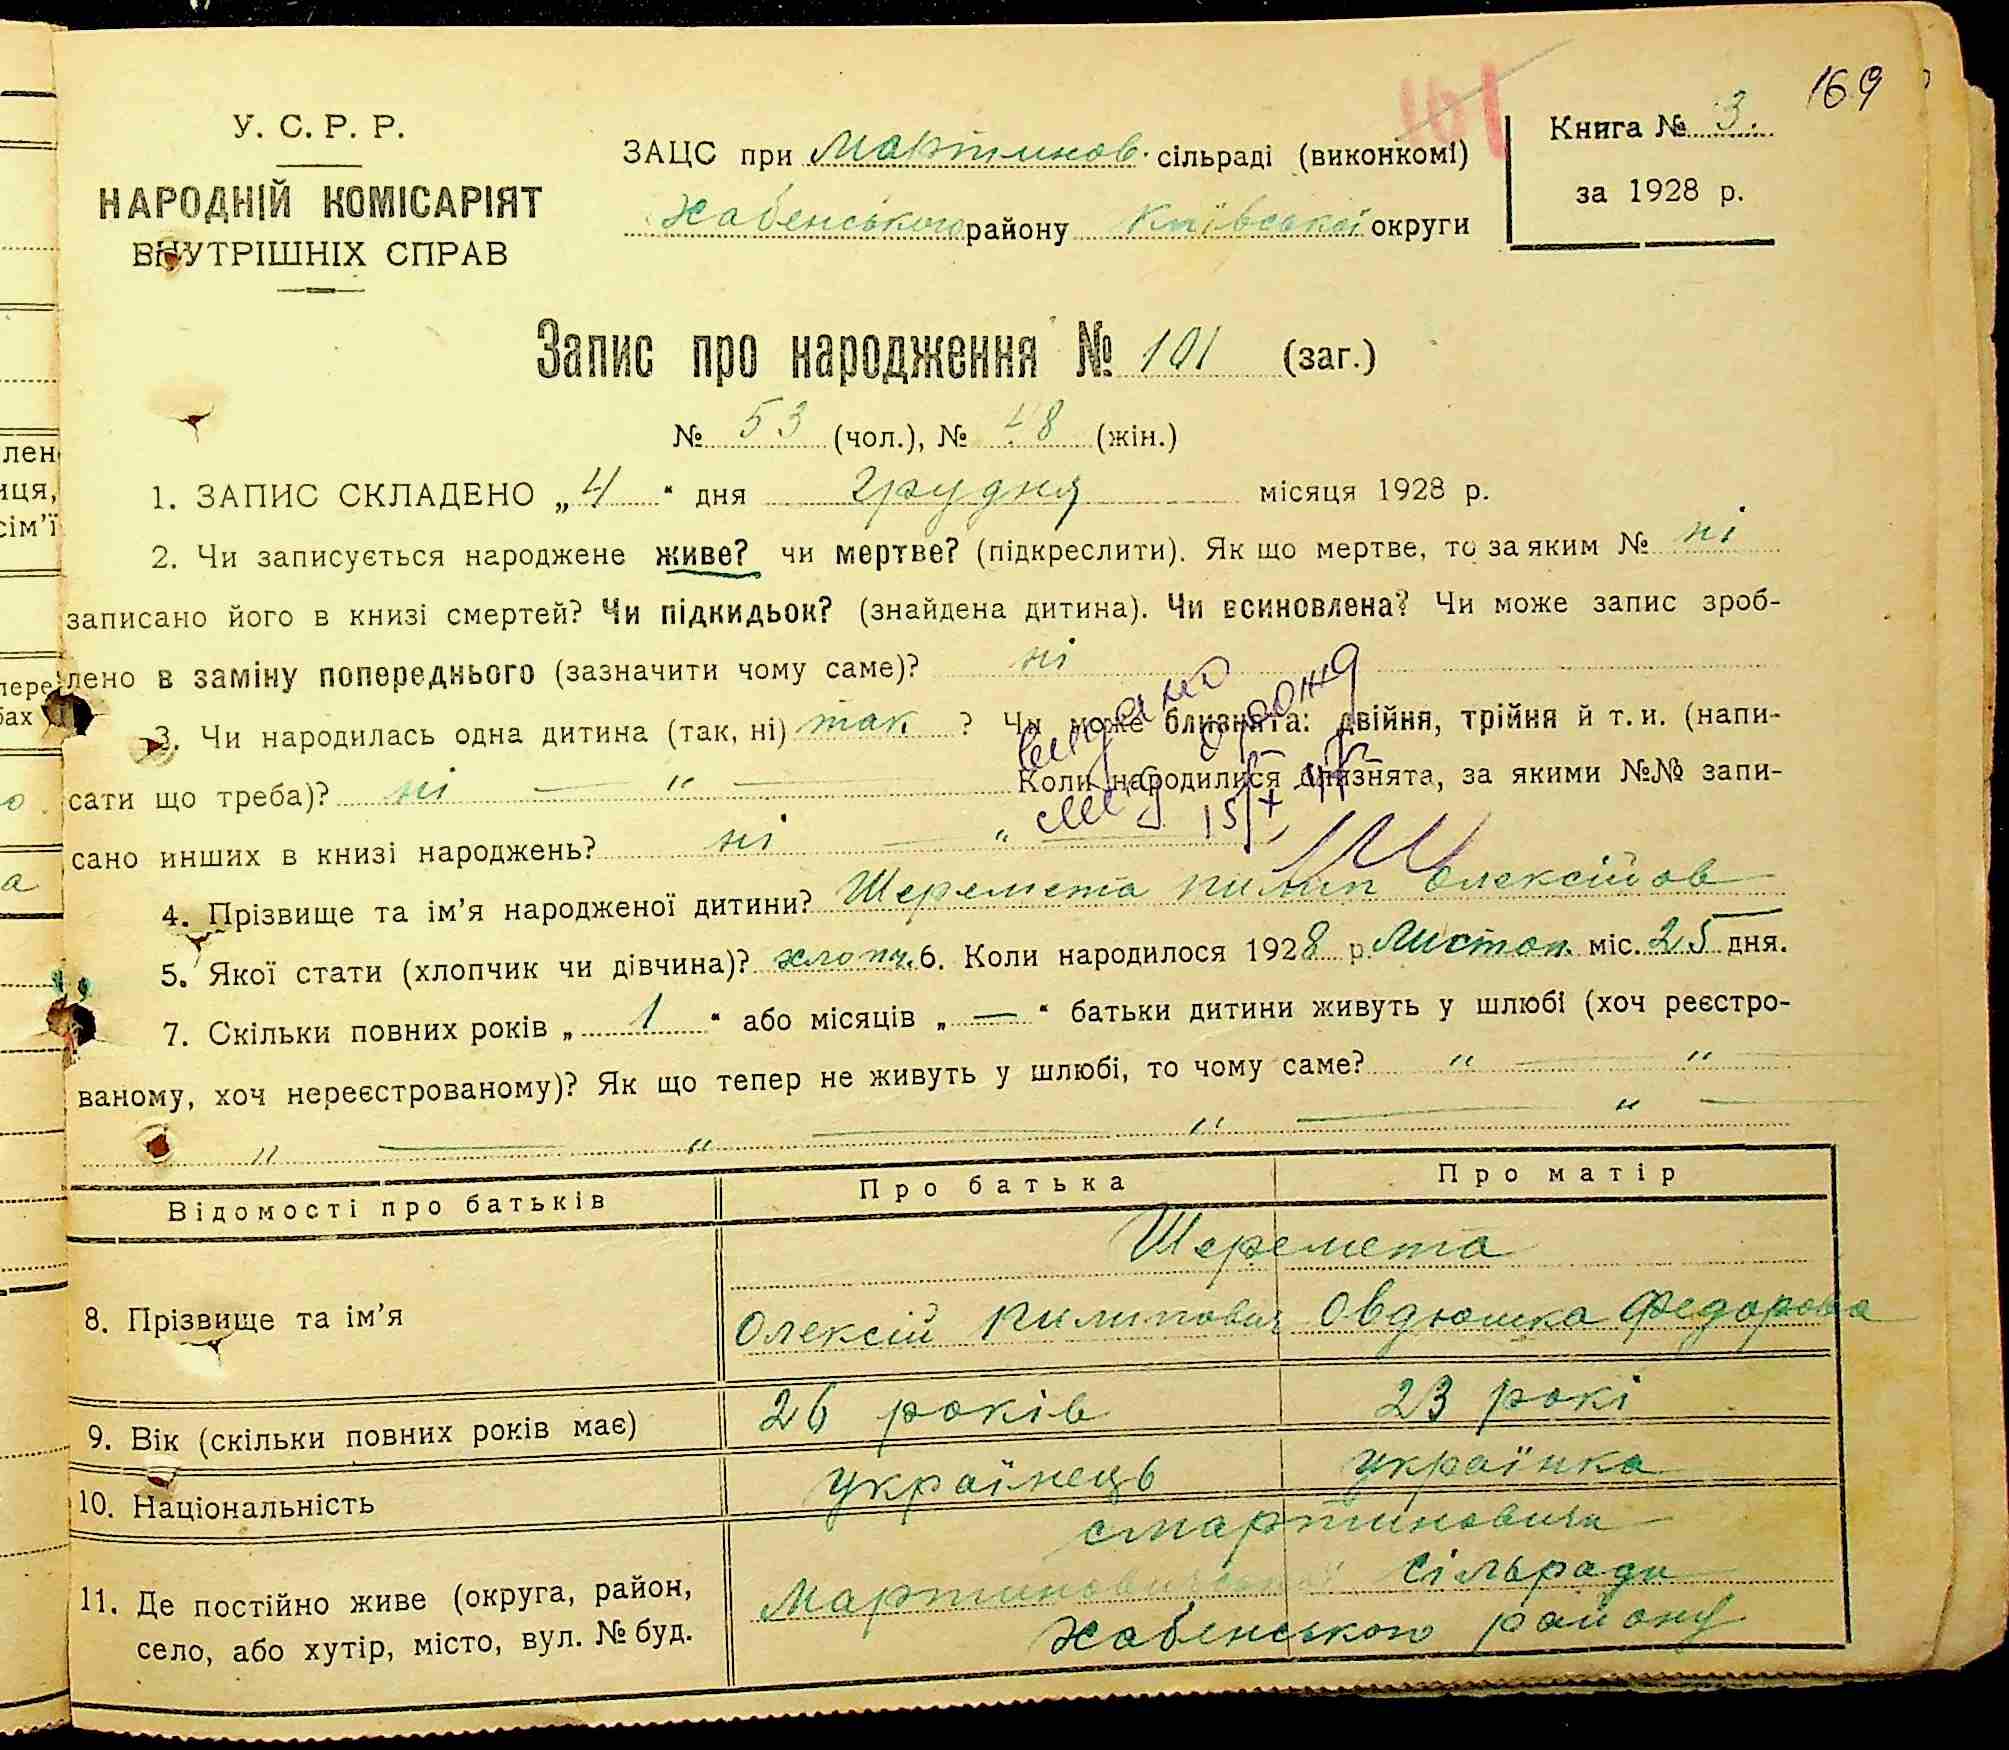 169
161
У. С. Р. Р.
НАРОДНІЙ КОМІСАРІЯТ
ВНУТРІШНІХ СПРАВ
ЗАЦС при Мартинов. сільраді (виконкомі)
Хабенського району Київської округи
Книга № 3.
за 1928 р.
Запис про народження № 101 (заг.)
№ 53 (чол.), № 48 (жін.)
1. ЗАПИС СКЛАДЕНО „4“ дня Грудня місяця 1928 р.
2. Чи записується народжене живе? чи мертве? (підкреслити). Як що мертве, то за яким № ні
записано його в книзі смертей? Чи підкидьок? (знайдена дитина). Чи всиновлена? Чи може запис зроб-
лено в заміну попереднього (зазначити чому саме)? ні
3. Чи народилась одна дитина (так, ні) так ? Чи може близнята: двійня, трійня й т. и. (напи-
сати що треба)? ні — „ — Коли народилися близнята, за якими №№ запи-
сано инших в книзі народжень? ні — „ —
4. Прізвище та ім’я народженої дитини? Шеремета Пилип Олексійов
5. Якої стати (хлопчик чи дівчина)? хлопч. 6. Коли народилося 1928 р. Листоп. міс. 25 дня.
7. Скільки повних років „ 1 “ або місяців „ — “ батьки дитини живуть у шлюбі (хоч реєстро-
ваному, хоч нереєстрованому)? Як що тепер не живуть у шлюбі, то чому саме? „ — „ —
„ — „ — „ — „ —
Відомості про батьків Про батька Про матір
Шеремета
8. Прізвище та ім’я Олексій Пилипович Овдюшка Федорова
9. Вік (скільки повних років має) 26 років 23 рокі
10. Національність українець українка
с Мартиновичи
11. Де постійно живе (округа, район, Мартиновичської Сільради
село, або хутір, місто, вул. № буд. Хабенського району